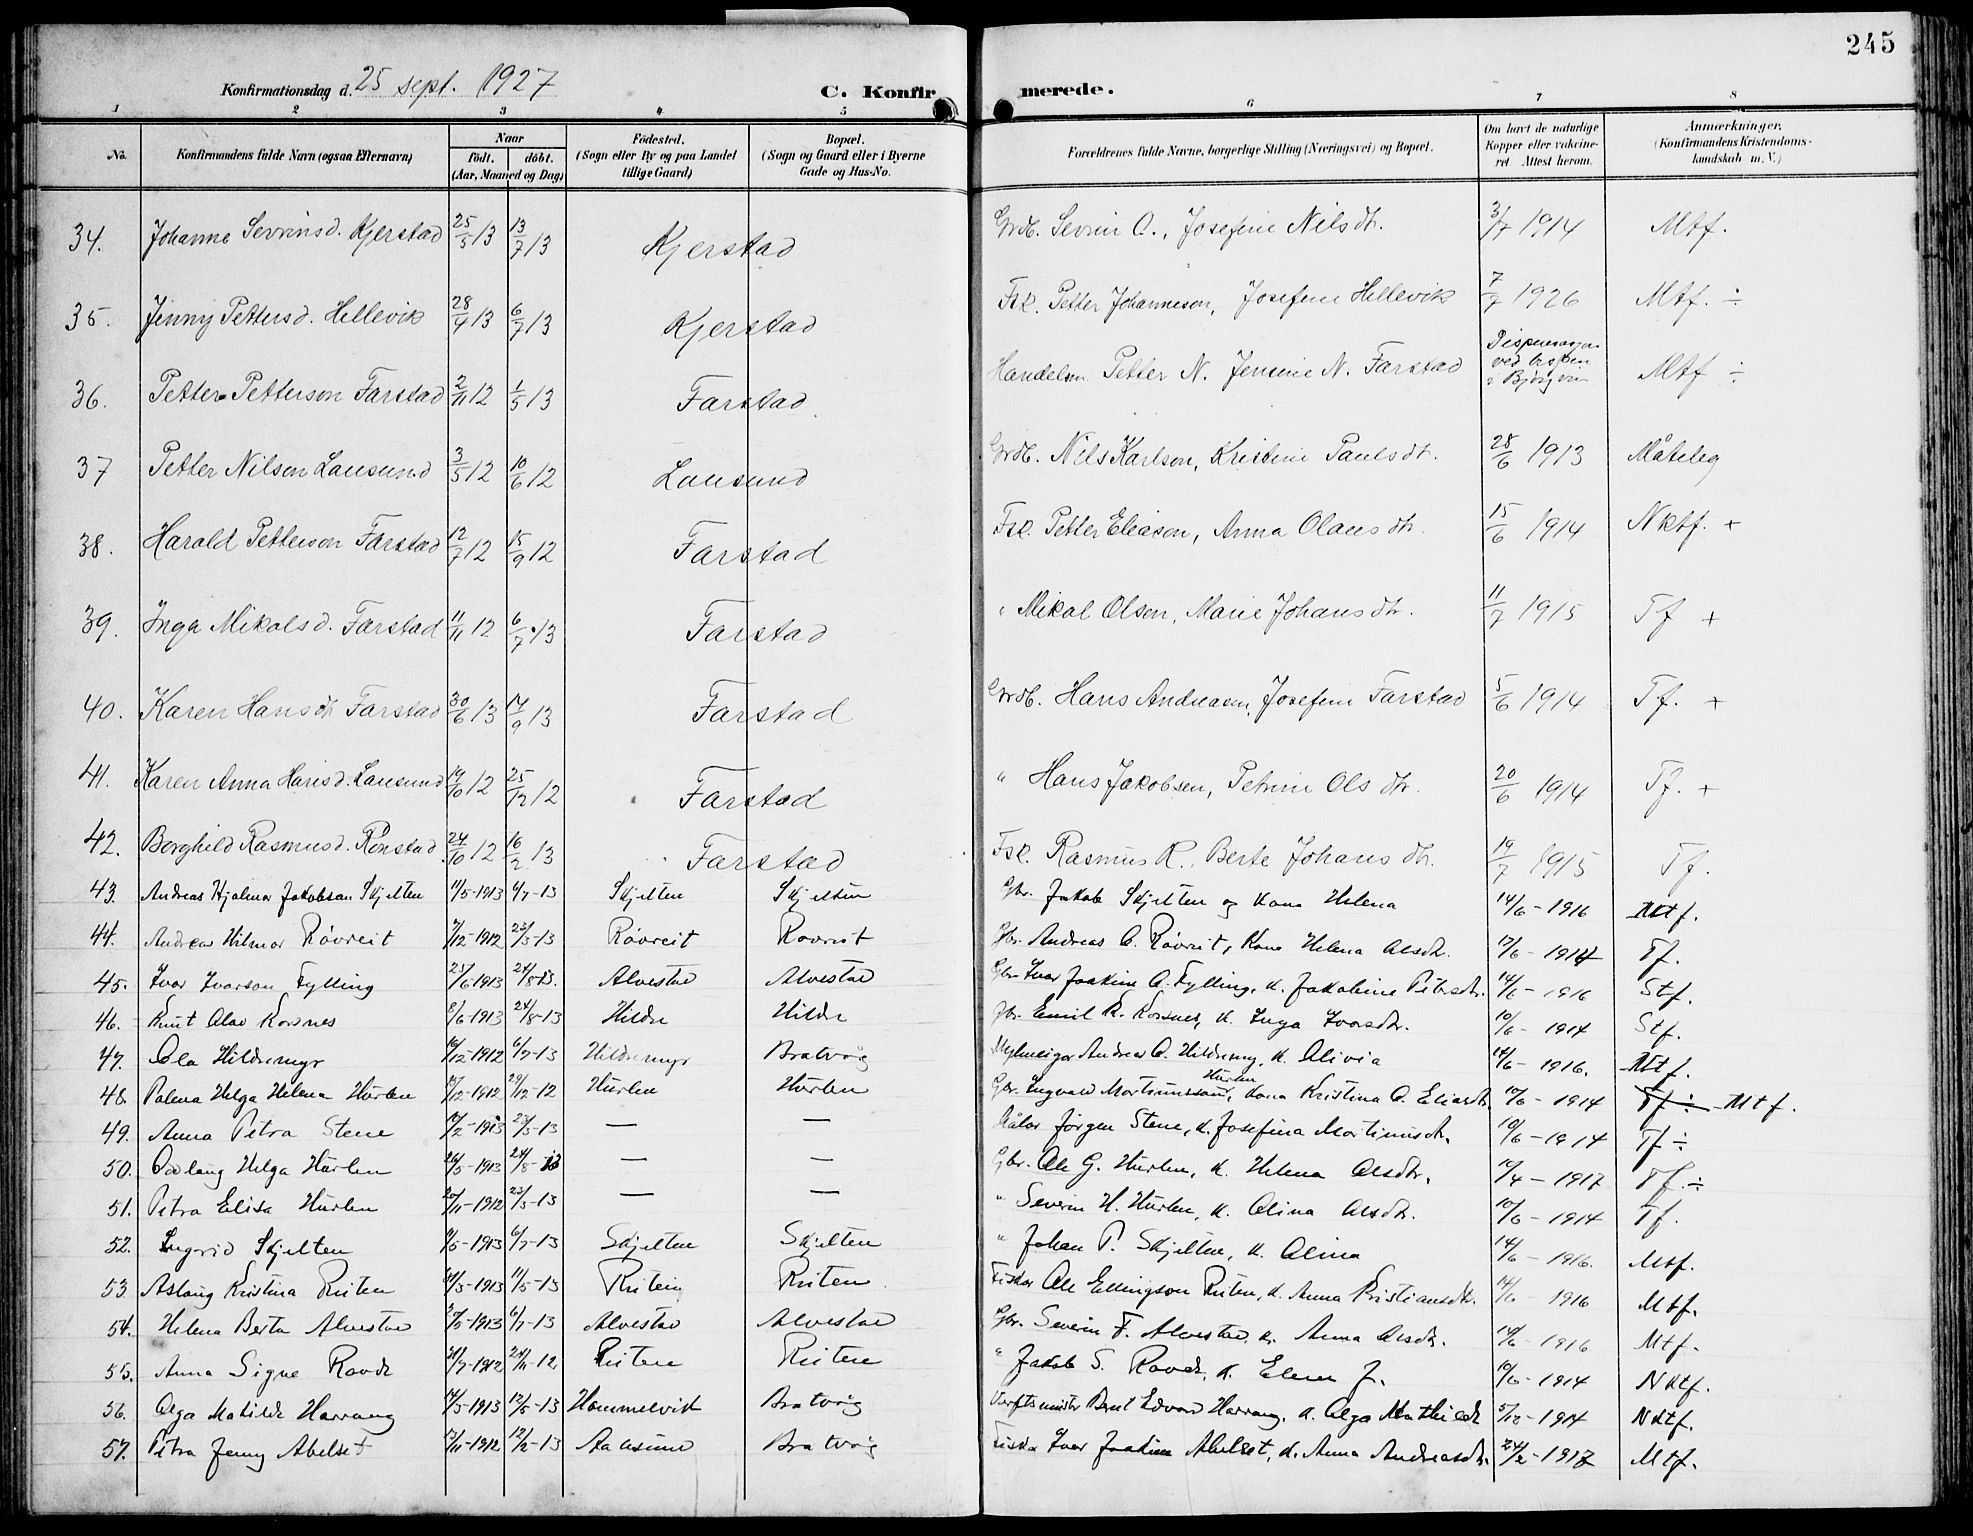 245
Konfirmationsdag d. 25 sept. 1927 C. Konfirmerede.
1 2 3 4 5 6 7 8
No. Konfirmandens fulde Navn (ogsaa Efternavn) Naar født. døbt. (Aar, Maaned og Dag) Fødested. (Sogn eller By og paa Landet tillige Gaard) Bopæl. (Sogn og Gaard eller i Byerne Gade og Hus-No. Forældrenes fulde Navne, borgerlige Stilling (Næringsvei) og Bopæl. Om havt de naturlige Kopper eller vakcineret Attest herom. Anmærkninger. (Konfirmandens Kristendomskundskab m. V.)
34. Johanne Sevrinsd. Kjerstad 25/5 13 13/7 13 Kjerstad Grdb. Sevrin O., Josefine Nilsdtr. 3/7 1914 Mtf.
35. Jenny Pettersd. Hellevik 28/4 13 6/7 13 Kjerstad Fsk. Petter Johanneson, Josefine Hellevik 7/7 1926 Mtf. ÷
36. Petter Petterson Farstad 2/11 12 1/5 13 Farstad Handelsm. Petter N. Jensine N. Farstad Dispensasjon ved bispen i Bjørgvin Mtf ÷
37 Petter Nilson Lausund 3/5 12 10/6 12 Lausund Grdb. Nils Karlson, Kristine Paulsdtr. 28/6 1913 Måteleg
38. Harald Petterson Farstad 12/7 12 15/9 12 Farstad Fsk. Petter Eliason, Anna Olausdtr. 15/6 1914 Nktf. +
39. Inga Mikalsd. Farstad 11/11 12 6/7 13 Farstad " Mikal Olsen, Marie Johansdtr. 11/7 1915 Tf +
40. Karen Hansdtr Farstad 30/6 13 14/9 13 Farstad Grdb. Hans Andreasen, Josefine Farstad 5/6 1914 Tf. +
41. Karen Anna Hansd. Lausund 19/10 12 25/12 12 Farstad " Hans Jakobsen, Petrine Olsdtr. 20/6 1914 Tf. +
42. Borghild Rasmusd. Rønstad 24/10 12 16/2 13 Farstad Fsk. Rasmus R., Berte Johansdtr. 19/7 1915 Tf.
43. Andreas Hjalmar Jakobsan Skjelten 11/5-1913 6/7-13 Skjelten Skjelten Gbr. Jakob Skjelten og kona Helena 14/6-1916 Mtf.
44. Andreas Hilmar Røvreit 7/12-1912 23/3-13 Røvreit Rovreit Gbr. Andreas O. Røvreit, kona Helena Olsdtr. 17/6-1914 Tf.
45. Ivar Ivarson Fylling 25/6-1913 24/8-13. Alvestad Alvestad Gbr. Ivar Joakim O. Fylling, k. Jakobine Petersdtr. 14/6-1916 Stf.
46. Knut Olav Korsnes 8/6-1913 24/8-13 Hildre Hildre Gbr. Emil K. Korsnes, k. Inga Ivarsdtr. 10/6-1914 Stf.
47. Ola Hildremyr 16/12-1912 6/7-13 Hildremyr Bratvåg Mylneeigar Andreas O. Hildremyr, k. Olivia 14/6-1916. Mtf.
48. Palma Helga Helena Hurlen 2/12-1912 29/12-12 Hurlen Hurlen Gbr. Ingvald Martinusson Hurlen, kona Kristina O. Eliasdtr. 10/6-1914 Tf ÷ - Mtf.
49. Anna Petra Stene 17/2-1913 23/3-13 — — Målar Jørgen Stene, k. Josefina Martinusdtr. 10/6-1914 Tf ÷
50. Oddlaug Helga Hurlen 26/5-1913 24/8-13 — — Gbr. Ole G. Hurlen, k. Helena Olsdtr. 19/4-1917 Tf. ÷
51. Petra Elisa Hurlen 20/11-1912 23/3-13 — — " Severin H. Hurlen, k. Olina Olsdtr. 10/6-1914 Tf.
52. Ingrid Skjelten 9/5-1913 6/7-13 Skjelten Skjelten " Johan P. Skjelten, k. Olina 14/6-1916. Mtf.
53 Aslaug Kristina Riiten 31/3-1913 11/5-13 Riiten Riiten Fiskar Ole Ellingson Riiten, k. Anna Kristiansdtr. 14/6-1916 Mtf.
54. Helena Berta Alvestad 20/5-1913 6/7-13 Alvestad Alvestad Gbr. Severin F. Alvestad k. Anna Olsdtr. 14/6-1916 Mtf.
55. Anna Signe Ravde 31/7-1912 24/11-12. Riiten Riiten " Jakob S. Ravde, k. Elen J. 10/6-1914 Nktf.
56. Olga Matilde Harrang 14/3-1913 12/5-13 Hammelvik Bratvåg Verftsmeister Bernt Edvard Harrang, k. Olga Mathilde 5/12-1914 Nktf.
57. Petra Jenny Abelset 17/11-1912 12/2-13 Aalesund Bratvåg Fiskar Ivar Joakim Abelset, k. Anna Andreasdtr. 24/2-1917 Mtf.